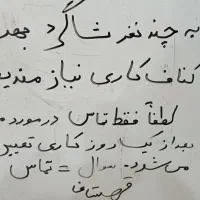 به چند نفر شاگرد جهت
کناف کاری نیاز مندیم
لطفاً فقط تماس در مورد
بعد از یک روز کاری تعیین
می شود. سوال = تماس